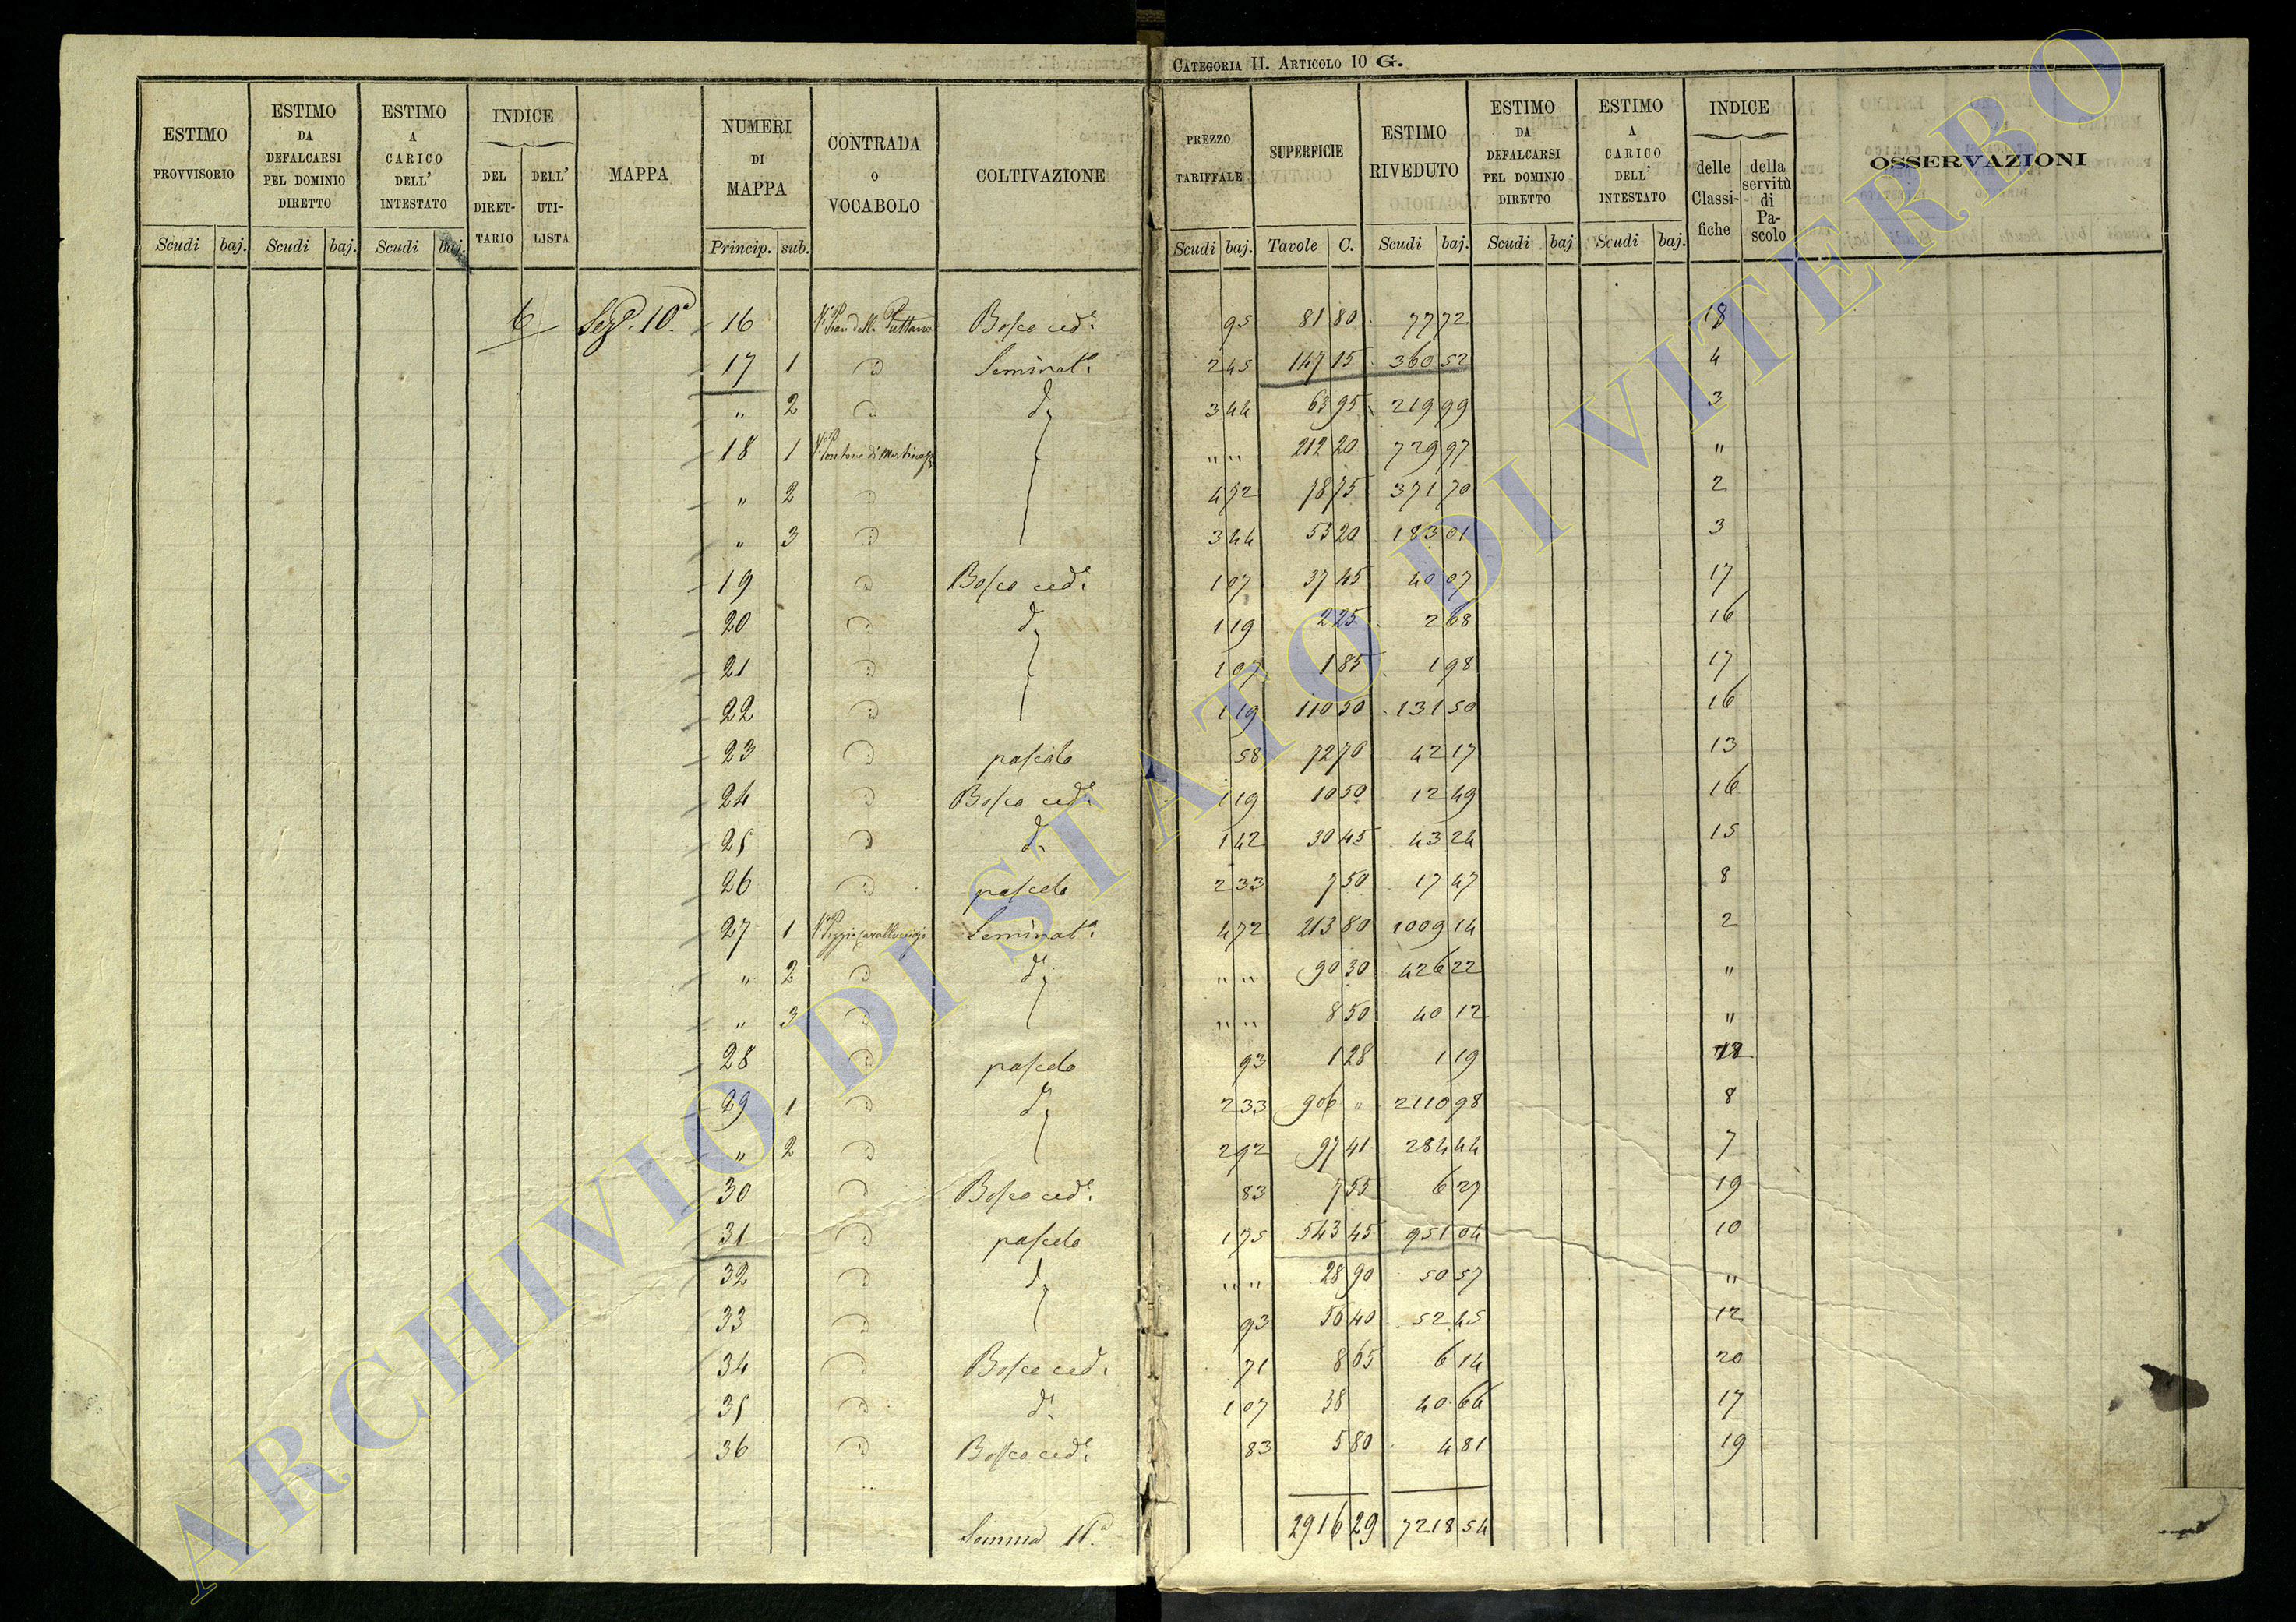 CATEGORIA II. ARTICOLO 10 G.
ESTIMO PROVVISORIO Scudi baj. | ESTIMO DA DEFALCARSI PEL DOMINIO DIRETTO Scudi baj. | ESTIMO A CARICO DELL' INTESTATO Scudi baj. | INDICE DEL DIRET-TARIO | DELL' UTI-LISTA | MAPPA | NUMERI DI MAPPA Princip. sub. | CONTRADA O VOCABOLO | COLTIVAZIONE | PREZZO TARIFFALE Scudi baj. | SUPERFICIE Tavole C. | ESTIMO RIVEDUTO Scudi baj. | ESTIMO DA DEFALCARSI PEL DOMINIO DIRETTO Scudi baj | ESTIMO A CARICO DELL' INTESTATO Scudi baj. | INDICE delle Classi-fiche | della servitù di Pa-scolo | OSSERVAZIONI
6 Sez.e 10.a 16 Bosco ced.e 95 81 80 77 72 18
17 1 " Seminat.o 2 45 147 15 360 52 4
" 2 " d.o 3 44 63 95 219 99 3
18 1 " " 212 20 729 97 "
" 2 " 4 72 78 75 371 70 2
" 3 " 3 44 53 20 183 01 3
19 " Bosco ced.e 1 07 37 45 40 07 17
20 " d.o 1 19 2 25 2 68 16
21 " 1 07 1 85 1 98 17
22 " 1 19 110 50 131 50 16
23 " pascolo 58 72 70 42 17 13
24 " Bosco ced.e 1 19 10 50 12 49 16
25 " d.o 1 42 30 45 43 24 15
26 " pascolo 2 33 7 50 17 47 8
27 1 Seminat.o 4 72 213 80 1009 14 2
" 2 " d.o " " 90 30 426 22 "
" 3 " " " 8 50 40 12 "
28 " pascolo 93 1 28 1 19 12
29 1 " d.o 2 33 906 " 2110 98 8
" 2 " 2 92 97 41 284 44 7
30 " Bosco ced.e 83 7 55 6 27 19
31 " pascolo 1 75 543 45 951 04 10
32 " d.o " " 28 90 50 57 "
33 " 93 56 40 52 45 12
34 " Bosco ced.e 71 8 65 6 14 20
35 " d.o 1 07 38 40 66 17
36 " Bosco ced.e 83 5 80 4 81 19
Somma 2916 29 7218 54
ARCHIVIO DI STATO DI VITERBO